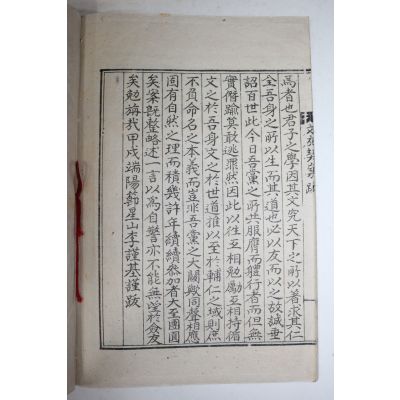 馬者也君子之學因其文究天下之所以著求其仁
全吾身之所以生而其道也必以友而以之故誠垂
詔百世此今日吾黨之所共服膺而體行者而但無
實僭踰其敢逃罪狀因此以往互相勉勵互相持循
文之於吾身文之於世道推以至於輔仁之域則庶
不負命名之本義而豈非吾黨之大關歟同聲相應
固有自然之理而積幾許年續續參加者大至團圓
矣案旣整略述一言以爲自警亦不能無望於僉友
矣勉旃哉甲戌端陽節星山李謹基謹跋